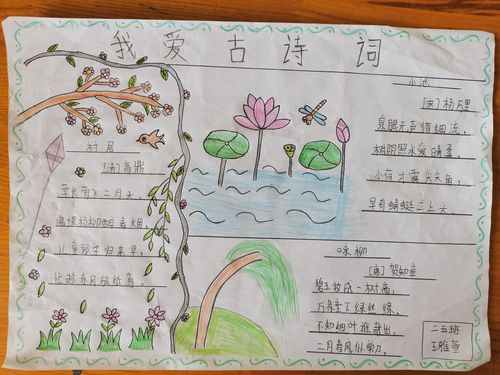 我爱古诗词
小池
[宋]杨万里
泉眼无声惜细流,
树阴照水爱晴柔。
小荷才露尖尖角,
早有蜻蜓立上头。
村居
[清]高鼎
草长莺飞二月天,
拂堤杨柳醉春烟。
儿童散学归来早,
忙趁东风放纸鸢。
咏柳
[唐]贺知章
碧玉妆成一树高,
万条垂下绿丝绦。
不知细叶谁裁出,
二月春风似剪刀。
二五班